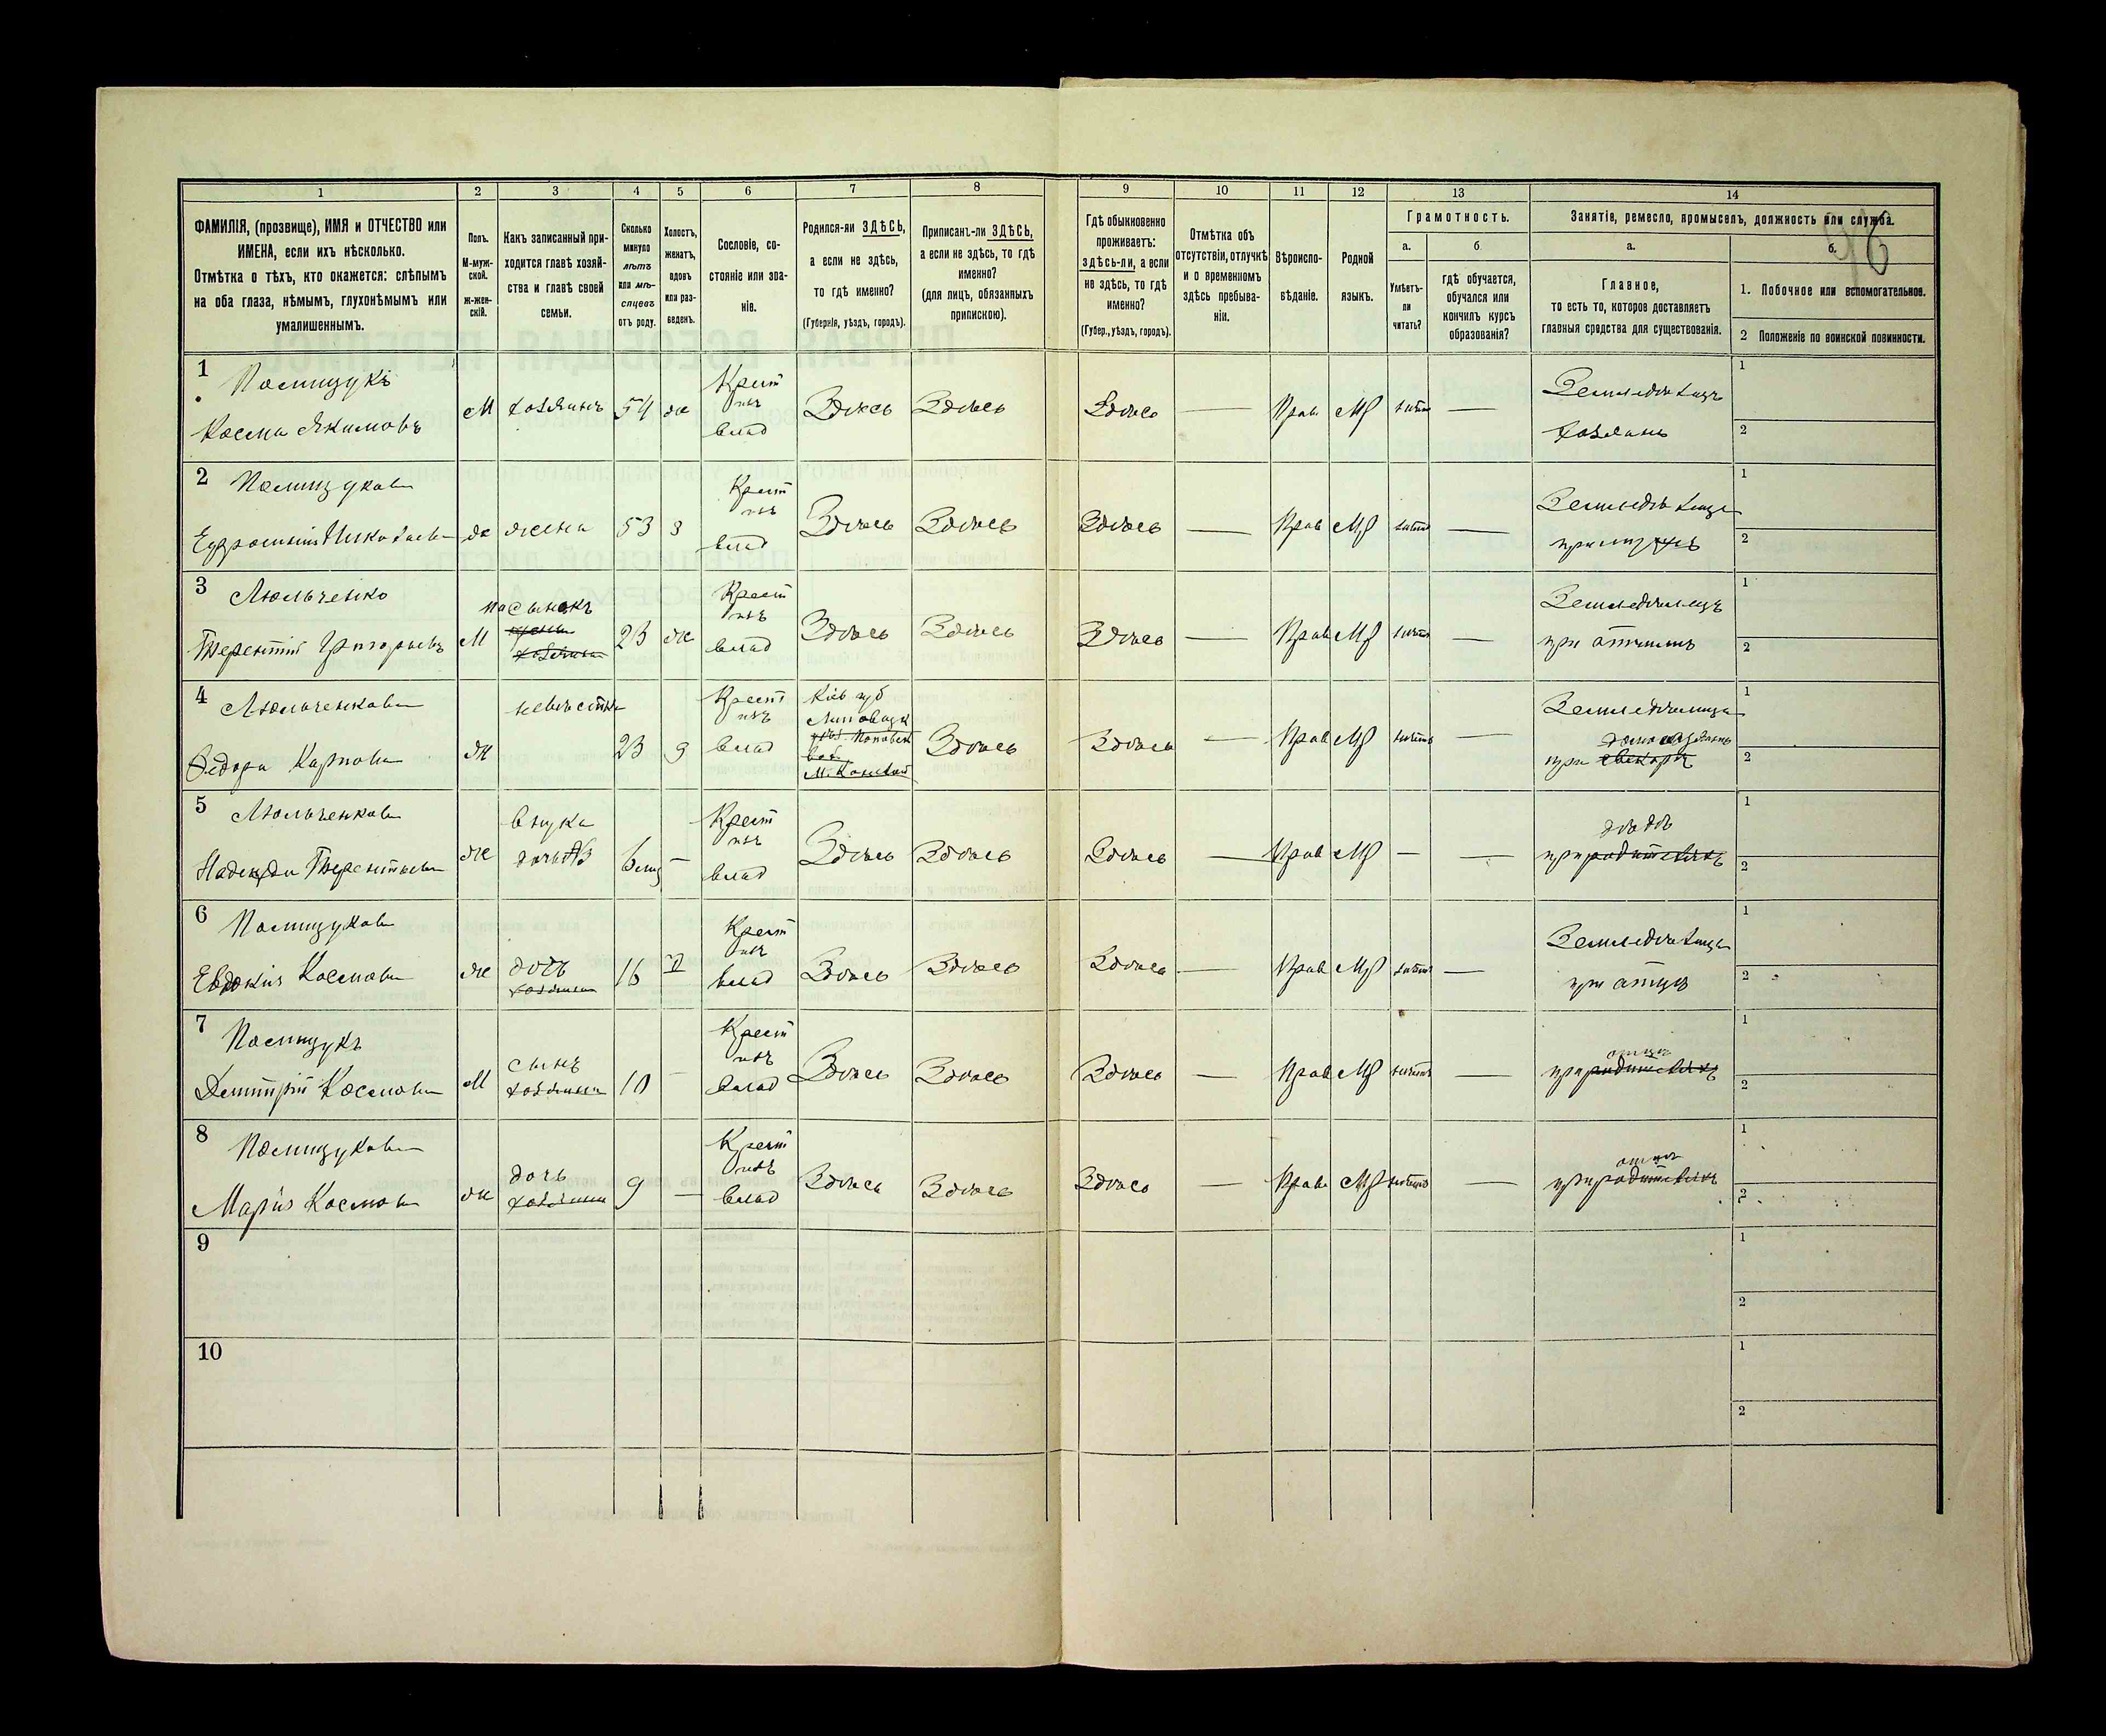 96
1 2 3 4 5 6 7 8 9 10 11 12 13 14
ФАМИЛІЯ, (прозвище), ИМЯ и ОТЧЕСТВО или
ИМЕНА, если ихъ нѣсколько.
Отмѣтка о тѣхъ, кто окажется: слѣпымъ
на оба глаза, нѣмымъ, глухонѣмымъ или
умалишеннымъ.
Полъ.
М-муж-
ской.
Ж-жен-
скій.
Какъ записанный при-
ходится главѣ хозяй-
ства и главѣ своей
семьи.
Сколько
минуло
лѣтъ
или мѣ-
сяцевъ
отъ роду.
Холостъ,
женатъ,
вдовъ
или раз-
веденъ.
Сословіе, со-
стояніе или зва-
ніе.
Родился-ли ЗДѢСЬ,
а если не здѣсь,
то гдѣ именно?
(Губернія, уѣздъ, городъ).
Приписанъ-ли ЗДѢСЬ,
а если не здѣсь, то гдѣ
именно?
(для лицъ, обязанныхъ
припискою).
Гдѣ обыкновенно
проживаетъ:
здѣсь-ли, а если
не здѣсь, то гдѣ
именно?
(Губер., уѣздъ, городъ).
Отмѣтка объ
отсутствіи, отлучкѣ
и о временномъ
здѣсь пребыва-
ніи.
Вѣроиспо-
вѣданіе.
Родной
языкъ.
Грамотность.
а.
Умѣетъ-
ли
читать?
б
гдѣ обучается,
обучался или
кончилъ курсъ
образованія?
Занятіе, ремесло, промыселъ, должность или служба.
а.
Главное,
то есть то, которое доставляетъ
главныя средства для существованія.
б.
1. Побочное или вспомогательное.
2 Положеніе по воинской повинности.
1 Полищукъ
Косма Якимовъ
М хозяинъ 54 ж
Крест
изъ
влад
Здѣсь Здѣсь Здѣсь — Прав МР —
Земледѣлецъ
хозяинъ
1
2
2 Полищукова
Евфросинія Николаева
ж жена 53 з
Крест
изъ
влад
Здѣсь Здѣсь Здѣсь — Прав МР —
при мужѣ
1
2
3 Люльченко
Терентій Григорьевъ
М пасынокъ
хозяина
23 ж
Крест
изъ
влад
Здѣсь Здѣсь Здѣсь — Прав МР —
Земледѣлецъ
при отчимѣ
1
2
4 Люльченкова
Федора Карпова
ж невѣстка 23 з
Крест
изъ
влад
Кіев губ
Липовецк
Здѣсь Здѣсь — Прав МР —
при свекорѣ
1
2
5 Люльченкова
Надежда Терентьева
ж внука
дочь
6 мѣц —
Крест
изъ
влад
Здѣсь Здѣсь Здѣсь — Прав МР — —
дѣдѣ
при родителяхъ
1
2
6 Полищукова
Евдокія Космова
ж дочь
хозяина
16
Крест
изъ
влад
Здѣсь Здѣсь Здѣсь — Прав МР —
при отцѣ
1
2
7 Полищукъ
Димитрій Космовъ
М сынъ
хозяина
10 —
Крест
изъ
влад
Здѣсь Здѣсь Здѣсь — Прав МР —
отцѣ
при родителяхъ
1
2
8 Полищукова
Марія Космова
ж дочь
хозяина
9 —
Крест
изъ
влад
Здѣсь Здѣсь Здѣсь — Прав МР —
отцѣ
при родителяхъ
1
2
9
1
2
10
1
2